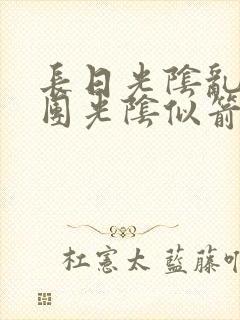 長日光陰亂
團光陰似箭
杜憲太 藍藤吖